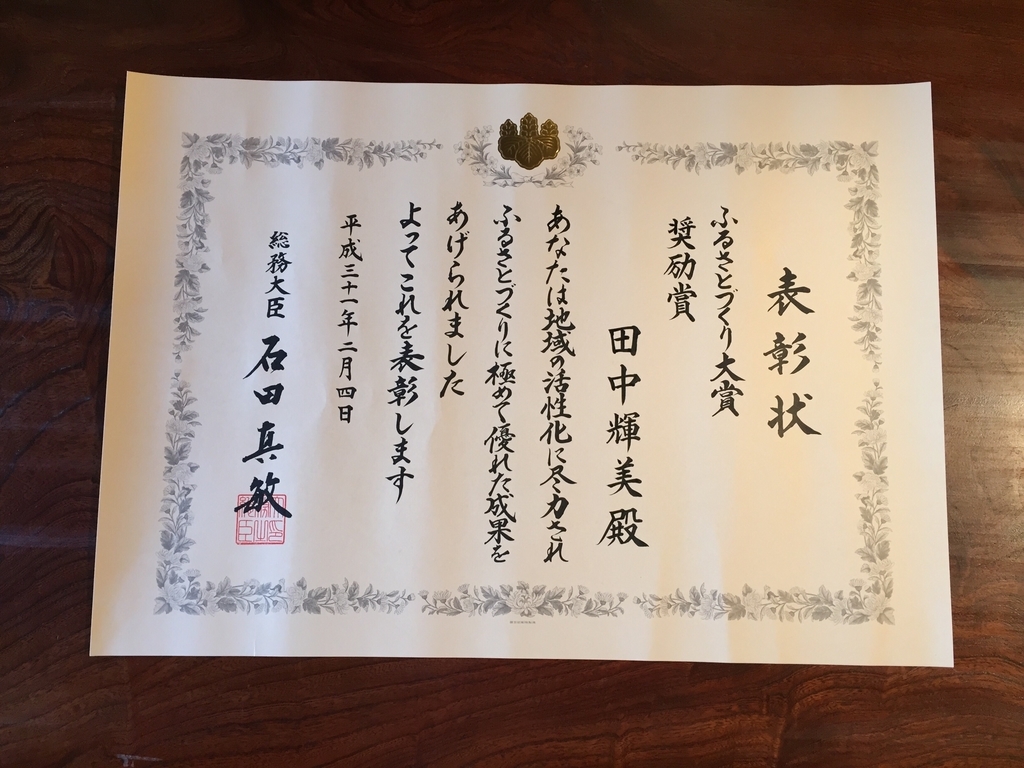 表彰状
ふるさとづくり大賞
奨励賞
田中輝美殿
あなたは地域の活性化に尽力され
ふるさとづくりに極めて優れた成果を
あげられました
よってこれを表彰します
平成三十一年二月四日
総務大臣 石田真敏